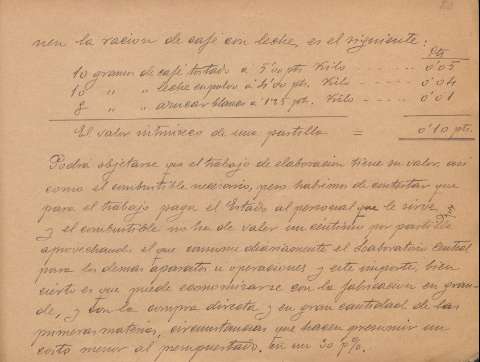 nen la racion de café con leche, es el siguiente:
Pts
10 gramos de café tostado á 5'00 pts. Kilo - - - - - 0'05
10 " " leche en polvo á 4'00 pts. Kilo - - - - - 0'04
8 " " azucar blanca á 1'25 pt. Kilo - - - - - 0'01
El valor intrinseco de una pastilla = 0'10 pts.
Podrá objetarse que el trabajo de elaboracion tiene su valor, asi
como el combustible necesario, pero habiamos de contestar que
para el trabajo paga el Estado al personal que le sirve
y el combustible no ha de valer un centimo por pastilla
aprovechando el que consume diariamente el Laboratorio Central
para los demas aparatos u operaciones y este importe, bien
cierto es que puede economizarse con la fabricacion en gran-
de, y con la compra directa y en gran cantidad de las
primeras materias, circunstancias que hacen presumir un
costo menor al presupuestado, en un 30 p%.